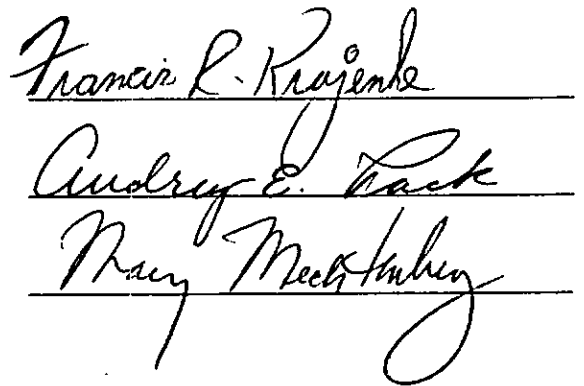 Francis R. Krajenke
Audrey E. Pack
Mary Mecklenburg